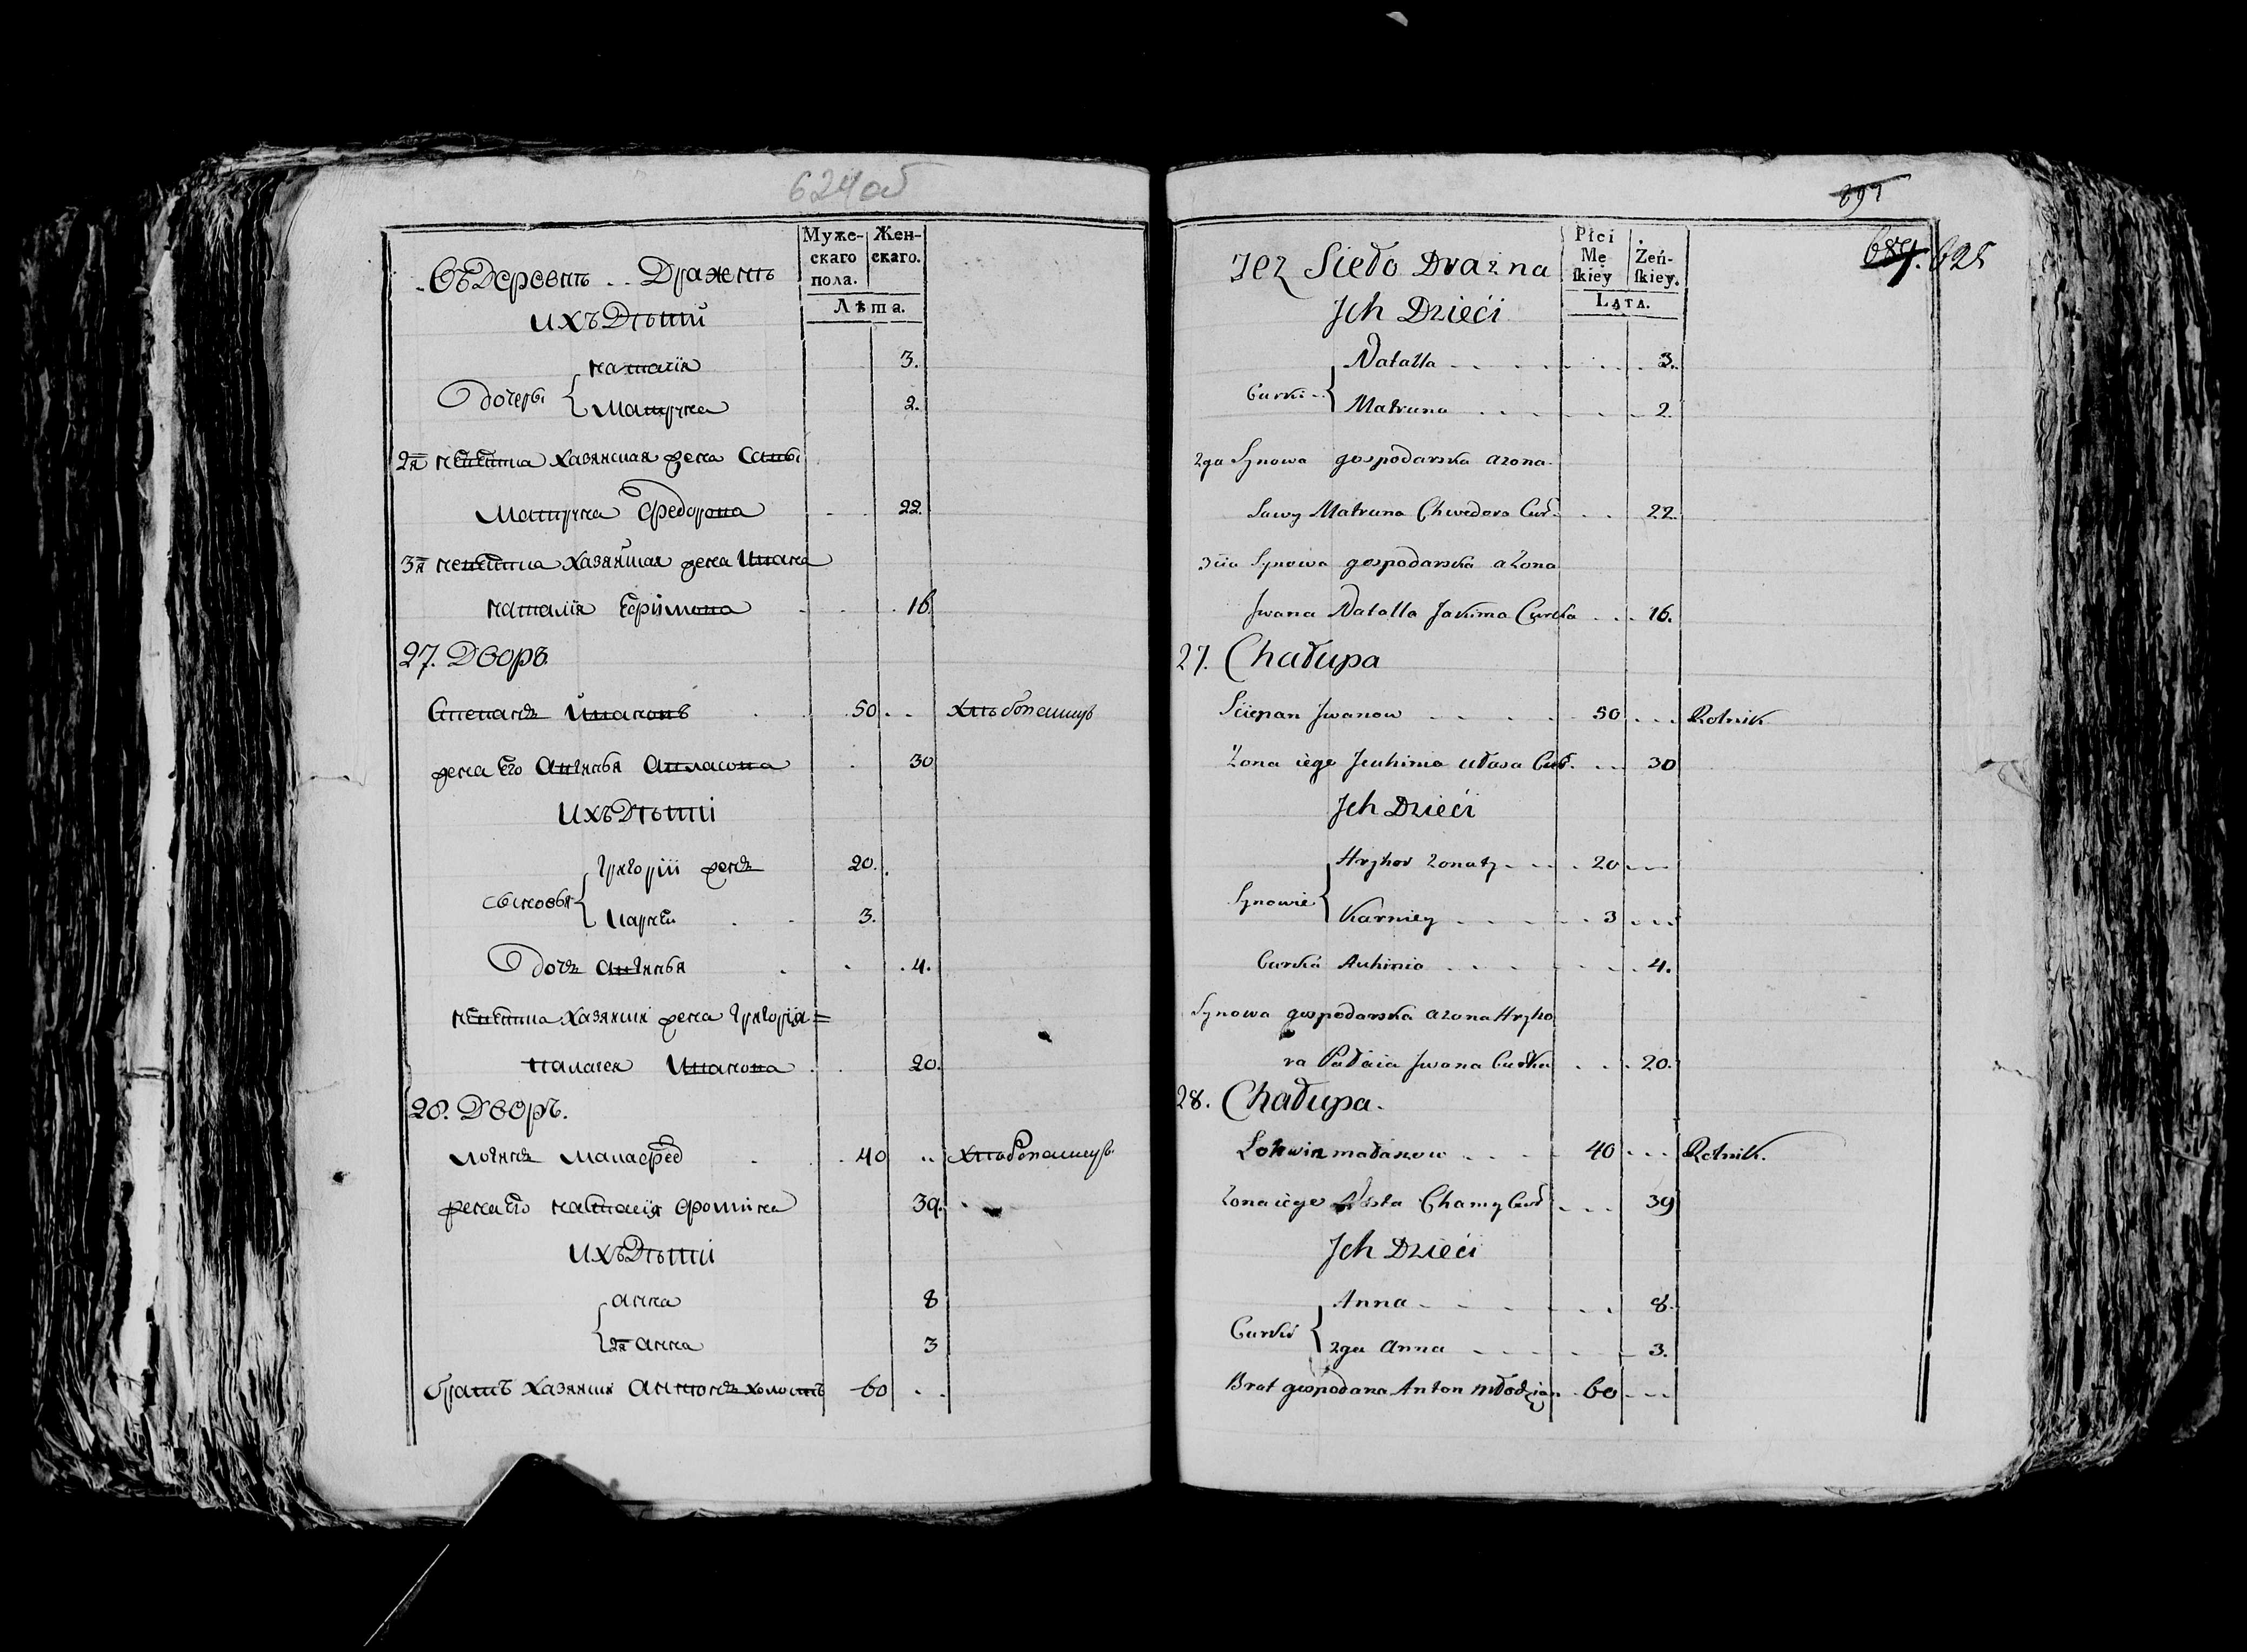 624об
Муже-
скаго
пола.
Жен-
скаго.
Лѣта.
Въ Деревнѣ Дражнѣ
ихъ Дѣти
Наталія 3.
Дочери
Матруна 2.
2я невѣстка хазяиская жена Савы
Матруна Федорова 22.
3я невѣстка хазяиская жена Ивана
Наталія Ефимова 16
27. Дворъ.
Степанъ Ивановъ 50 Хлѣбопашецъ
жена Его Авгинья Авласова 30
Ихъ Дѣти
Григорій женатъ 20.
сыновья
Карнѣй 3.
Дочь Авгинья 4.
невѣстка хазяина жена Григорія=
Палагея Иванова 20.
28. Дворъ.
Логинъ 40 Хлѣбопашецъ.
жена Его Настасія Фомина 39.
Ихъ Дѣти
Анна 8
2я Анна 3
братъ хазяина Антонъ холостъ 60
397
625
Płci
Mę
ſkiey
Żeń-
ſkiey.
LATA.
Tez Sieło Drażna
Jch Dzieći
Natalla 3.
Curki
Matruna 2.
2ga Synowa gospodarska a zona
Sawy Matruna Chwedora Cur. 22.
3cia Synowa gospodarska a żona
Jwana Natalla Jakima Curka 16.
27. Chałupa
Sciepan Jwanow 50 Rolnik
Żona iego Jeuhinia Ułasa Cur. 30
Jch Dzieći
Hryhor żonaty 20
Synowie
Karniey 3
Curka Auhinia 4.
Synowa gospodarska a zona Hryho
ra Pałaia Jwana Curka 20.
28. Chałupa.
Lohwin małaxow 40 Rolnik.
Zona iego Chamy Curk 39
Jch Dzieći
Anna 8.
Curki
2ga Anna 3.
Brat gospodara Anton młodzian 60